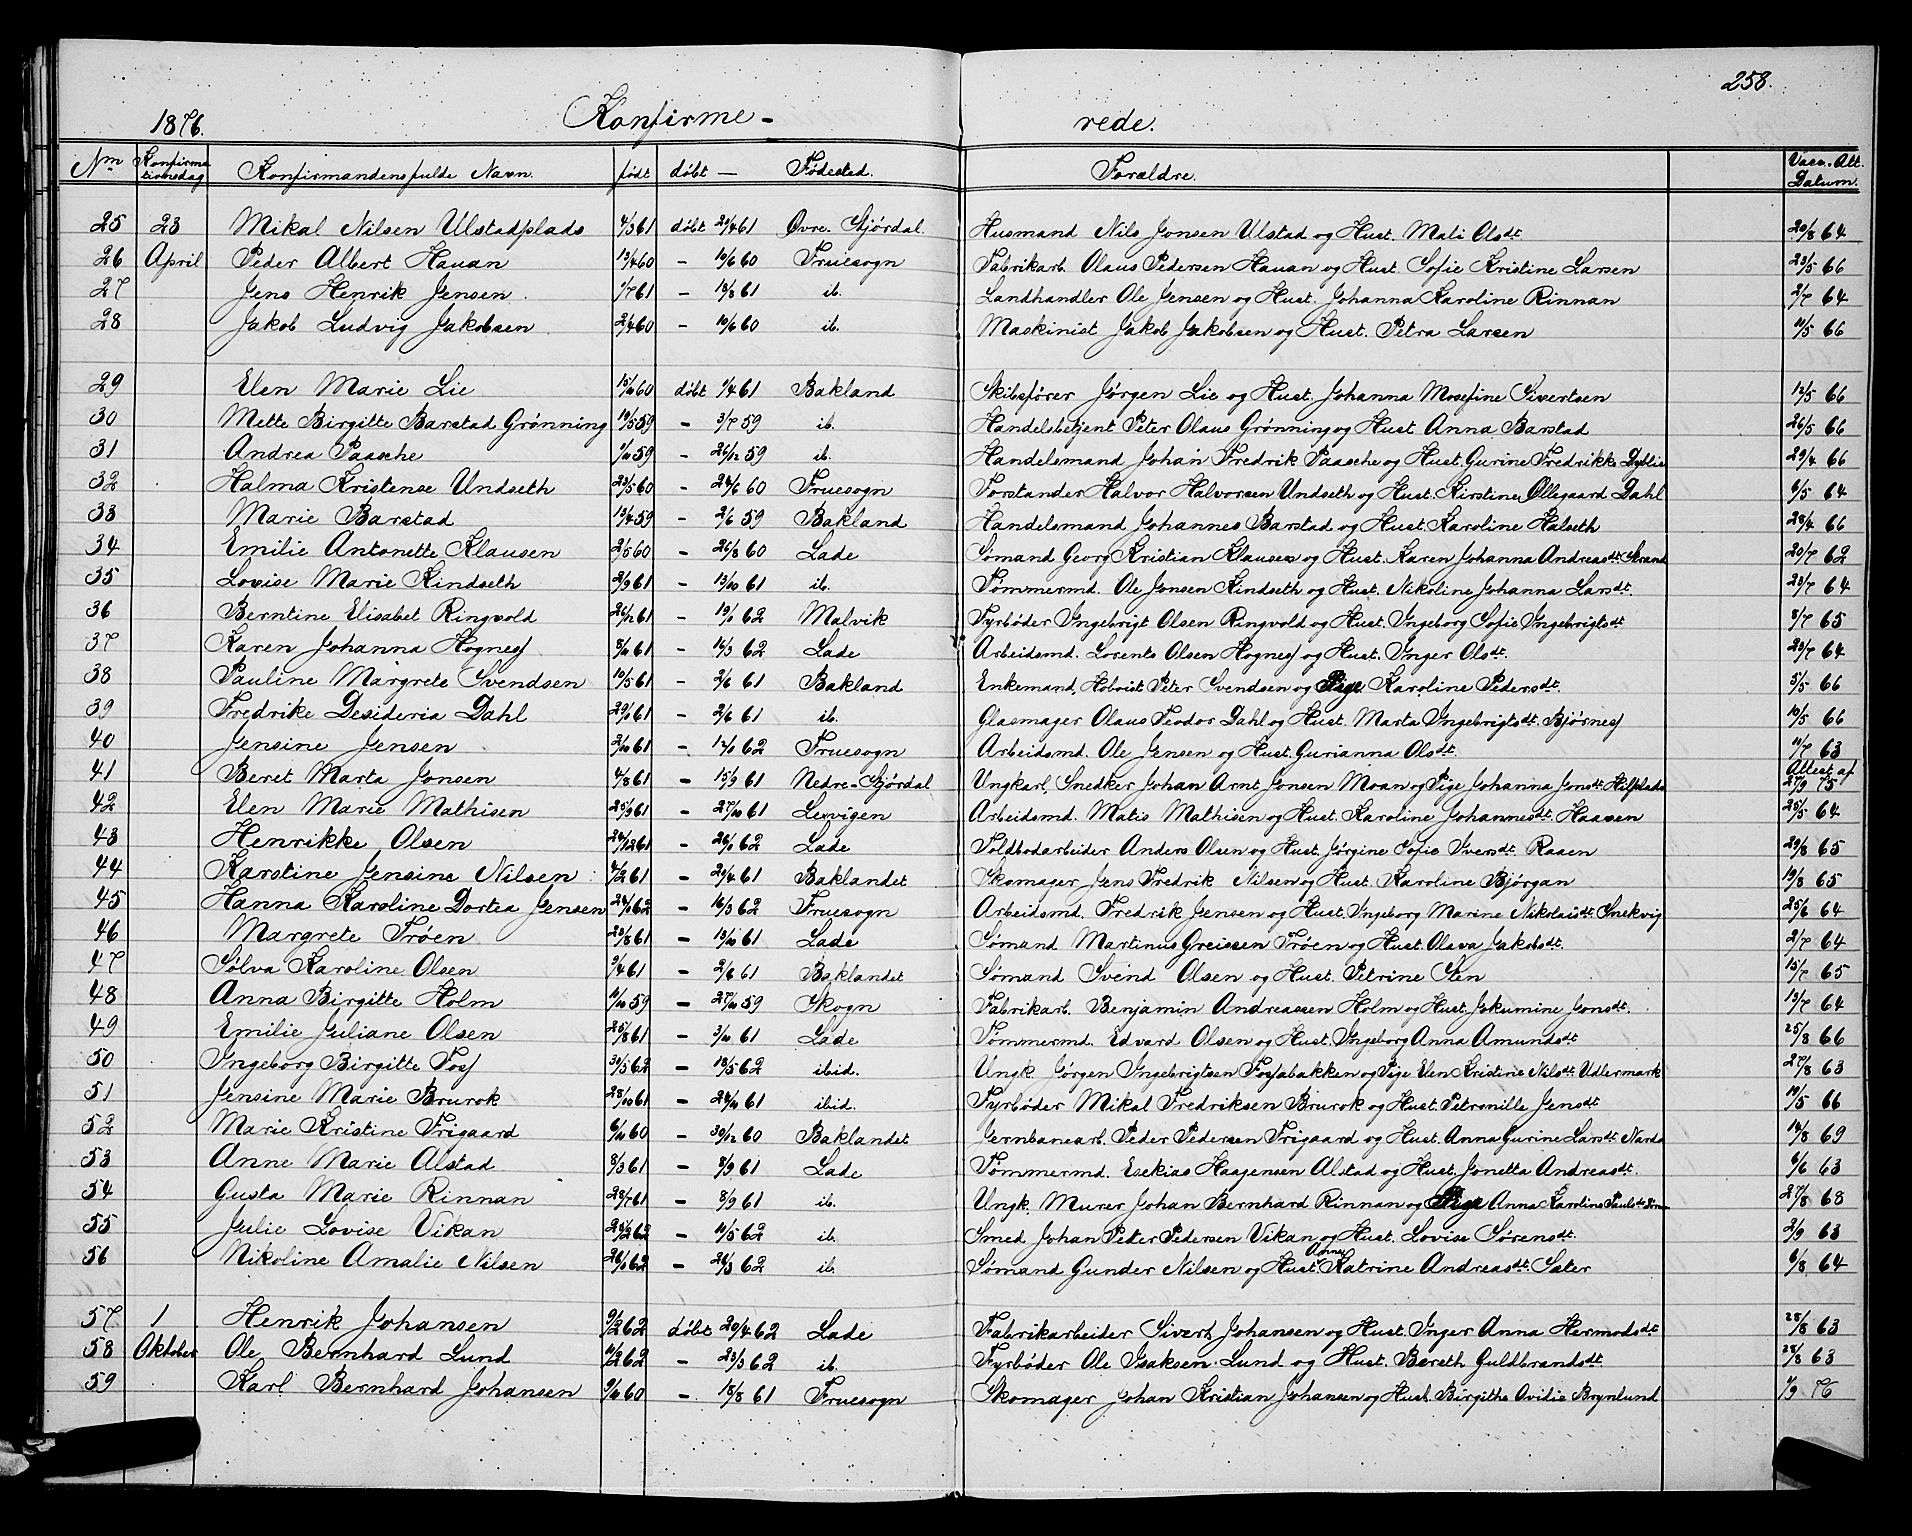 258.
1876. Konfirme - rede.
Nm Konfirmationsdag Konfirmandens fulde Navn. født døbt — Fødested. Forældre. Vacc. Att. Datum.
25 23 Mikal Nilsen Ulstadplads 4/3 61 døbt 21/4 61 Øvre. Stjørdal. Husmand Nils Jonsen Ulstad og Hust. Mali Olsdt. 20/8 64
26 April Peder Albert Hauan 13/4 60 - 10/6 60 Fruesogn Fabrikarb. Olaus Pedersen Hauan og Hust. Sofie Kristine Larsen 23/5 66
27 Jens Henrik Jensen 1/7 61 - 18/8 61 ib. Landhandler Ole Jensen og Hust. Johanna Karoline Rinnan 2/7 64
28 Jakob Ludvig Jakobsen 2/4 60 - 10/6 60 ib. Maskinist Jakob Jakobsen og Hust. Petra Larsen 11/5 66
29 Elen Marie Lie 15/10 60 døbt 1/4 61 Bakland Skibsfører Jørgen Lie og Hust. Johanna Mosefine Sivertsen 12/5 66
30 Mette Birgitte Barstad Grønning 19/5 59 - 3/7 59 ib. Handelsbetjent Peter Olaus Grønning og Hust. Anna Barstad 26/5 66
31 Andrea Paasche 1/10 59 - 26/12 59 ib. Handelsmand Johan Fredrik Paasche og Hust. Gurine Fredrikke Dyblie 29/4 66
32 Halma Kristense Undseth 23/5 60 - 24/6 60 Fruesogn Forstander Halvor Halvorsen Undseth og Hust. Kirstine Ollegaard Dahl 6/5 64
33 Marie Barstad 13/4 59 - 2/6 59 Bakland Handelsmand Johannes Barstad og Hust. Karoline Halseth 28/4 66
34 Emilie Antonette Klausen 2/5 60 - 26/8 60 Lade Sømand Georg Kristian Klausen og Hust. Karen Johanna Andreasdt. Strand 20/7 62
35 Lovise Marie Kindseth 2/9 61 - 13/10 61 ib. Tømmermd. Ole Jonsen Kindseth og Hust. Nikoline Johanna Larsdt. 23/7 64
36 Berntine Elisabet Ringvold 26/12 61 - 19/1 62 Malvik Fyrbøder Ingebrigt Olsen Ringvold og Hust. Ingeborg Sofie Ingebrigtsdt. 8/7 65
37 Karen Johanna Hognes 8/11 61 - 16/3 62 Lade Arbeidsmd. Lorents Olsen Hognes og Hust. Inger Olsdt. 23/7 64
38 Pauline Margrete Svendsen 10/5 61 - 2/6 61 Bakland Enkemand, Hoboist Peter Svendsen og Pige Karoline Pedersdt. 5/5 66
39 Fredrike Desideria Dahl 29/1 61 - 2/6 61 ib. Glasmager Olaus Teodor Dahl og Hust. Marta Ingebrigtsdt. Bjørnes 10/5 66
40 Jensine Jensen 3/10 61 - 12/1 62 Fruesogn Arbeidsmd. Ole Jensen og Hust. Gurianna Olsdt. 11/7 63
41 Beret Marta Jonsen 4/8 61 - 15/9 61 Nedre-Stjørdal Ungkarl, Snedker Johan Arnt Jonsen Moan og Pige Johanna Jonsdt. Hilfplads Attest af 27/9 75
42 Elen Marie Mathisen 25/9 61 - 27/10 61 Lexvigen Arbeidsmd. Matis Mathisen og Hust. Karoline Johannesdt. Haasen 25/5 64
43 Henrikke Olsen 24/12 61 - 26/1 62 Lade Toldbodarbeider Anders Olsen og Hust. Jørgine Sofie Iversdt. Raaen 29/8 65
44 Karstine Jensine Nilsen 4/2 61 - 29/4 61 Baklandet Skomager Jens Fredrik Nilsen og Hust. Karoline Bjørgan 19/8 65
45 Hanna Karoline Dortea Jensen 24/1 62 - 16/3 62 Fruesogn Arbeidsmd. Fredrik Jensen og Hust. Ingeborg Marine Nikolaisdt. Snekvig 25/6 64
46 Margrete Trøen 23/8 61 - 13/10 61 Lade Sømand Martinus Greissen Trøen og Hust. Olava Jakobsdt. 2/7 64
47 Sølva Karoline Olsen 9/4 61 - 2/6 61 Baklandet Sømand Svend Olsen og Hust. Petrine Sten 15/7 65
48 Anna Birgitte Holm 11/10 59 - 27/10 59 Skogn Fabrikarb. Benjamin Andreassen Holm og Hust. Jakumine Jonsdt. 13/7 64
49 Emilie Juliane Olsen 25/8 61 - 3/10 61 Lade Tømmermd. Edvard Olsen og Hust. Ingeborg Anna Amundsdt 25/8 66
50 Ingeborg Birgitte Fos 30/3 62 - 18/5 62 ibid. Ungk. Jørgen Ingebrigtsen Fossbakken og Pige Elen Kristine Nilsdt. Udlermark 27/8 63
51 Jensine Marie Brurok 28/10 61 - 24/11 61 ibid. Fyrbøder Mikal Fredriksen Brurok og Hust. Petronille Jensdt 10/5 66
52 Marie Kristine Frigaard 6/11 60 - 30/12 60 Baklandet Jernbanearb. Peder Pedersen Frigaard og Hust. Anna Gurine Larsdt. Nardo 14/8 69
53 Anne Marie Alstad 8/3 61 - 8/9 61 Lade Tømmermd. Esekias Haagensen Alstad og Hust. Jonetta Andreasdt. 6/6 63
54 Gusta Marie Rinnan 28/7 61 - 8/9 61 ib. Ungk. Murer Johan Bernhard Rinnan og Pige Anna Karoline Paulsdt. 27/8 68
55 Julie Lovise Vikan 25/2 62 - 11/5 62 ib. Smed Johan Peter Pedersen Vikan og Hust. Lovise Sørensdt. 2/9 63
56 Nikoline Amalie Nilsen 26/1 62 - 26/3 62 ib. Sømand Gunder Nilsen og Hust. Anna Katrine Andreasdt. Sater 6/8 64
57 1 Henrik Johansen 9/2 62 døbt 20/4 62 Lade Fabrikarbeider Sivert Johansen og Hust. Inger Anna Hermodsdt 28/8 63
58 Oktober Ole Bernhard Lund 11/2 62 - 23/3 62 ib. Fyrbøder Ole Isaksen Lund og Hust. Bereth Guldbrandsdt. 28/8 63
59 Karl Bernhard Johansen 9/11 60 - 18/8 61 Fruesogn Skomager Johan Kristian Johansen og Hust. Birgithe Ovidie Brynlund 1/9 76